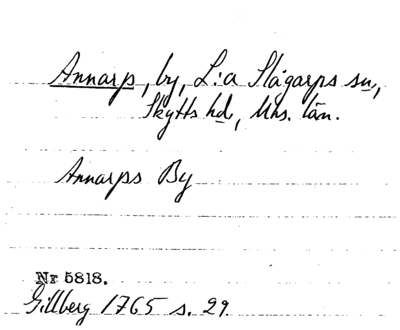 Annarp, by, L:a Slågarps sn,
Skytts hd, Mhs. län.
Annarps By
Nr 5818.
Gillberg 1765 s. 29.